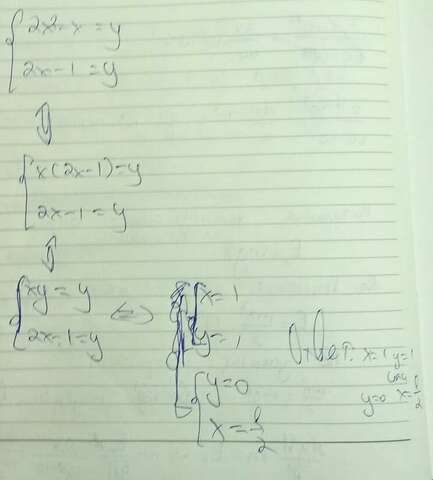 2x²-x=y
2x-1=y
⇕
x(2x-1)=y
2x-1=y
⇕
xy=y
2x-1=y
⇔
x=1
y=1
y=0
x=1/2
Ответ: x=1 y=1
или
y=0 x=1/2